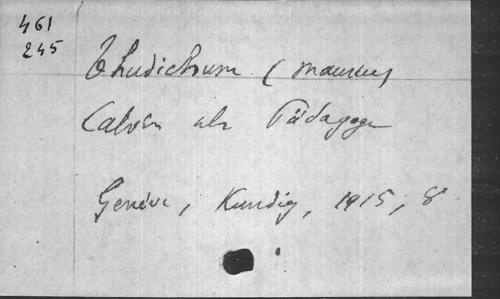 461
245
Thudichum (Maurice)
Calvin als Pädagoge
Genève, Kundig, 1915, 8°